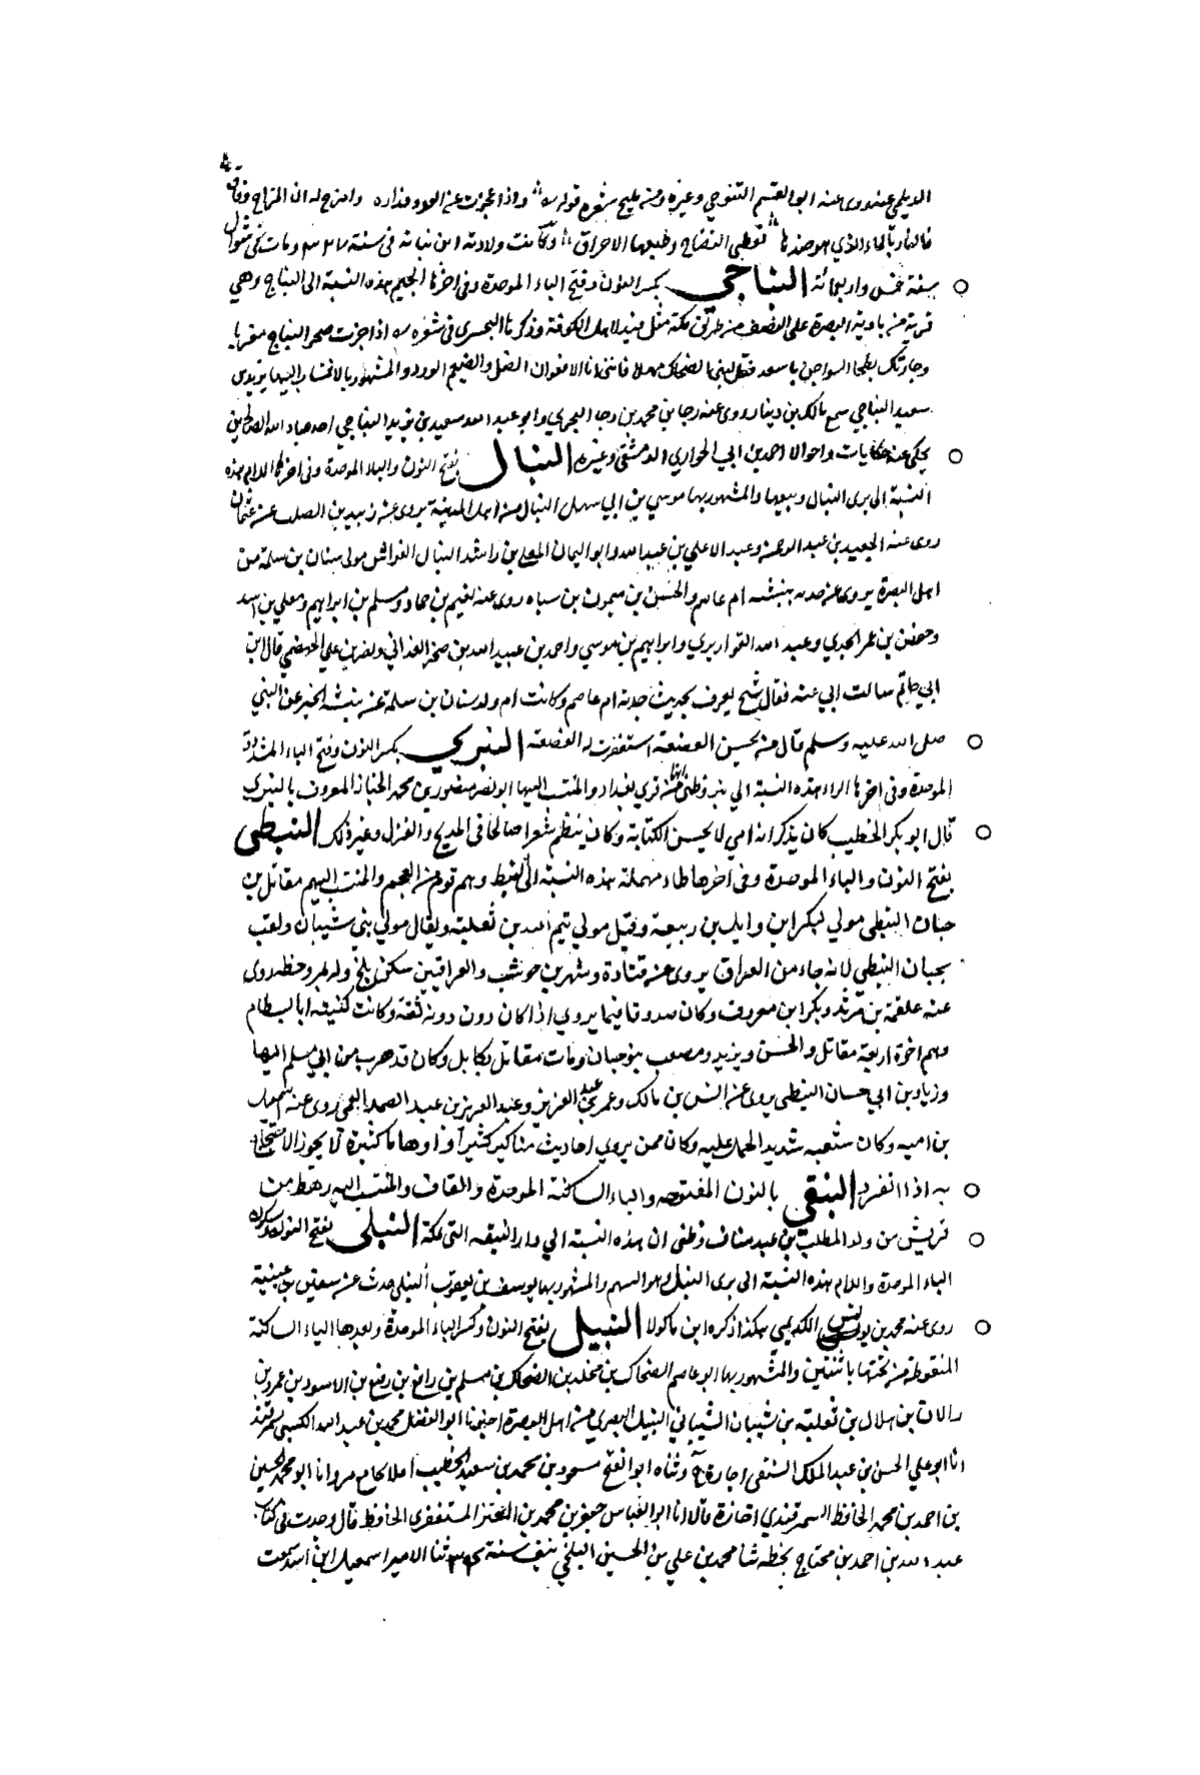 الديلمي عنه روى عنه ابو القسم التنوخي وغيره ومن مليح شعره قوله واذا عجزت عن العدو فداره وامزج له ان المزاج وفاق
فالنار بالماء الذي هو ضدها تعطي النضاج وطبعها الاحراق وكانت ولادة ابن نباتة في سنة ومات في شوال
سنة خمس واربعمائة النباجي بكسر النون وفتح الباء الموحدة وفي اخرها الجيم هذه النسبة الى النباج وهي
قرية من بادية البصرة على النصف من طريق مكة مثل فيد لاهل الكوفة وذكرها البحتري في شعره اذا جزت صحراء النباج مغربا
وجازتك بطحاء السواجر يا سعد فقل لبني الضحاك مهلا فانني انا الافعوان الصل والضيغم الورد والمشهور بالانتساب اليها يزيد بن
سعيد النباجي سمع مالك بن دينار روى عنه رجا بن محمد بن رجا البصري وابو عبد الله سعيد بن بريد النباجي احد عباد الله الصالحين
يحكى عنه حكايات واحوالا احمد بن ابي الحواري الدمشقي وغيره النبال بفتح النون والباء الموحدة وفي اخرها اللام هذه
النسبة الى برى النبال وبيعها والمشهور بها موسي بن ابي سهل النبال من اهل المدينة يروى عن زبيد بن الصلت عن عثمان
روى عنه الجعيد بن عبد الرحمن وعبد الاعلي بن عبد الله وابو اليمان المعلى بن راشد النبال القواس مولى سنان بن سلمة من
اهل البصرة يروى عن جدته نبيشه ام عاصم والحسن بن ميمون بن سياه روى عنه نعيم بن حماد ومسلم بن ابراهيم ومعلي بن اسد
وحفص بن عمر الجدي وعبيد الله القواريري وابراهيم بن موسي واحمد بن عبيد الله بن صخر الغداني ونصر بن علي الجهضمي قال ابن
ابي حاتم سالت ابي عنه فقال شيخ يعرف بحديث جدته ام عاصم وكانت ام ولد سنان بن سلمة عن نبيشه الخير عن النبي
صلى الله عليه وسلم قال من لحس القصعة استغفرت له القصعة النبري بكسر النون وفتح الباء المشددة
الموحدة وفي اخرها الراء هذه النسبة الي نبر وظني انها من قرى بغداد والمنتسب اليها ابو نصر منصور بن محمد الخباز المعروف بالنبري
قال ابو بكر الخطيب كان يذكر انه امي لا يحسن الكتابة وكان ينظم شعرا صالحا في المديح والغزل وغير ذلك النبطي
بفتح النون والباء الموحدة وفي اخرها طاء مهملة هذه النسبة الى النبط وهم قوم من العجم والمنتسب اليهم مقاتل بن
حبان النبطي مولي لبكر ابن وايل بن ربيعة وقيل مولي تيم الله بن ثعلبة ويقال مولي بني شيبان ولقب
بحيان النبطي لانه جاء من العراق يروى عن قتادة وشهر بن حوشب والعراقيين سكن بلخ وله بمرو خطة روى
عنه علقمة بن مرثد وبكر ابن معروف وكان صدوقا فيما يروي اذا كان دون دونه ثقة وكانت كنيته ابا بسطام
وهم اخوة اربعة مقاتل والحسن ويزيد ومصعب بنو حيان ومات مقاتل بكابل وكان قد هرب من ابي مسلم اليها
وزياد بن ابي حسان النبطي يروى عن انس بن مالك وعمر بن عبد العزيز وعبد العزيز بن عبد الصمد العمي روى عنه اسمعيل
بن اميه وكان شعبه شديد الحمل عليه وكان ممن يروي احاديث مناكير كثيرا واوهاما كثيرة لا يجوز الاحتجاج
به اذا انفرد النبقي بالنون المفتوحه والباء الساكنة الموحدة والقاف والمنتسب اليه رهط من
قريش من ولد المطلب بن عبد مناف وظني ان هذه النسبة الي دار النبقه التي بمكة النبلي بفتح النون وسكون
الباء الموحدة واللام هذه النسبة الى برى النبل وهو السهم والمشهور بها يوسف بن يعقوب النبلي حدث عن سفين بن عيينة
روى عنه محمد بن يونس الكديمي هكذا ذكره ابن ماكولا النبيل بفتح النون وكسر الباء الموحدة وبعدها الياء الساكنة
المنقوطة من تحتها باثنتين والمشهور بها ابو عاصم الضحاك بن مخلد بن الضحاك بن مسلم بن رافع بن رفيع بن الاسود بن عمرو بن
رالان بن هلال بن ثعلبة بن شيبان الشيباني النبيل البصري من اهل البصرة اخبرنا ابو الفضل محمد بن عبد الله الكسي بسمرقند
انا ابو علي الحسن بن عبد الملك النسفي اجازة ح وثناه ابو الفتح مسعود بن محمد بن سعيد الخطيب املا بجامع مرو انا ابو محمد الحسن
بن احمد بن محمد الحافظ السمرقندي اجازة قالا انا ابو العباس جعفر بن محمد بن المعتز المستغفري الحافظ قال وجدت في كتاب
عبد الله بن احمد بن محتاج بخطه ثنا محمد بن علي بن الحسين البلخي بنسف سنة ثنا الامير اسمعيل ابن اسد سمعت